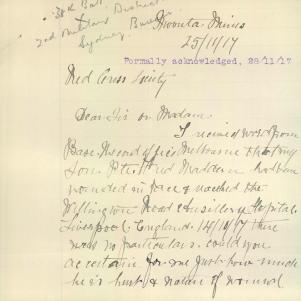 3rd Bat.
2nd Military District
Sydney
Moonta Mines
25/10/17
Formally acknowledged, 28/11/17
Red Cross Society
Dear Sir or Madam
I received word from
Base Records Office Melbourne that my
Son Pte Fred Maddern had been
wounded in face & reached the
Willington Road Auxillery Hospital
Liverpool England 14/10/17 there
was no particulars. could you
accertain for me just how much
he is hurt & nature of wound